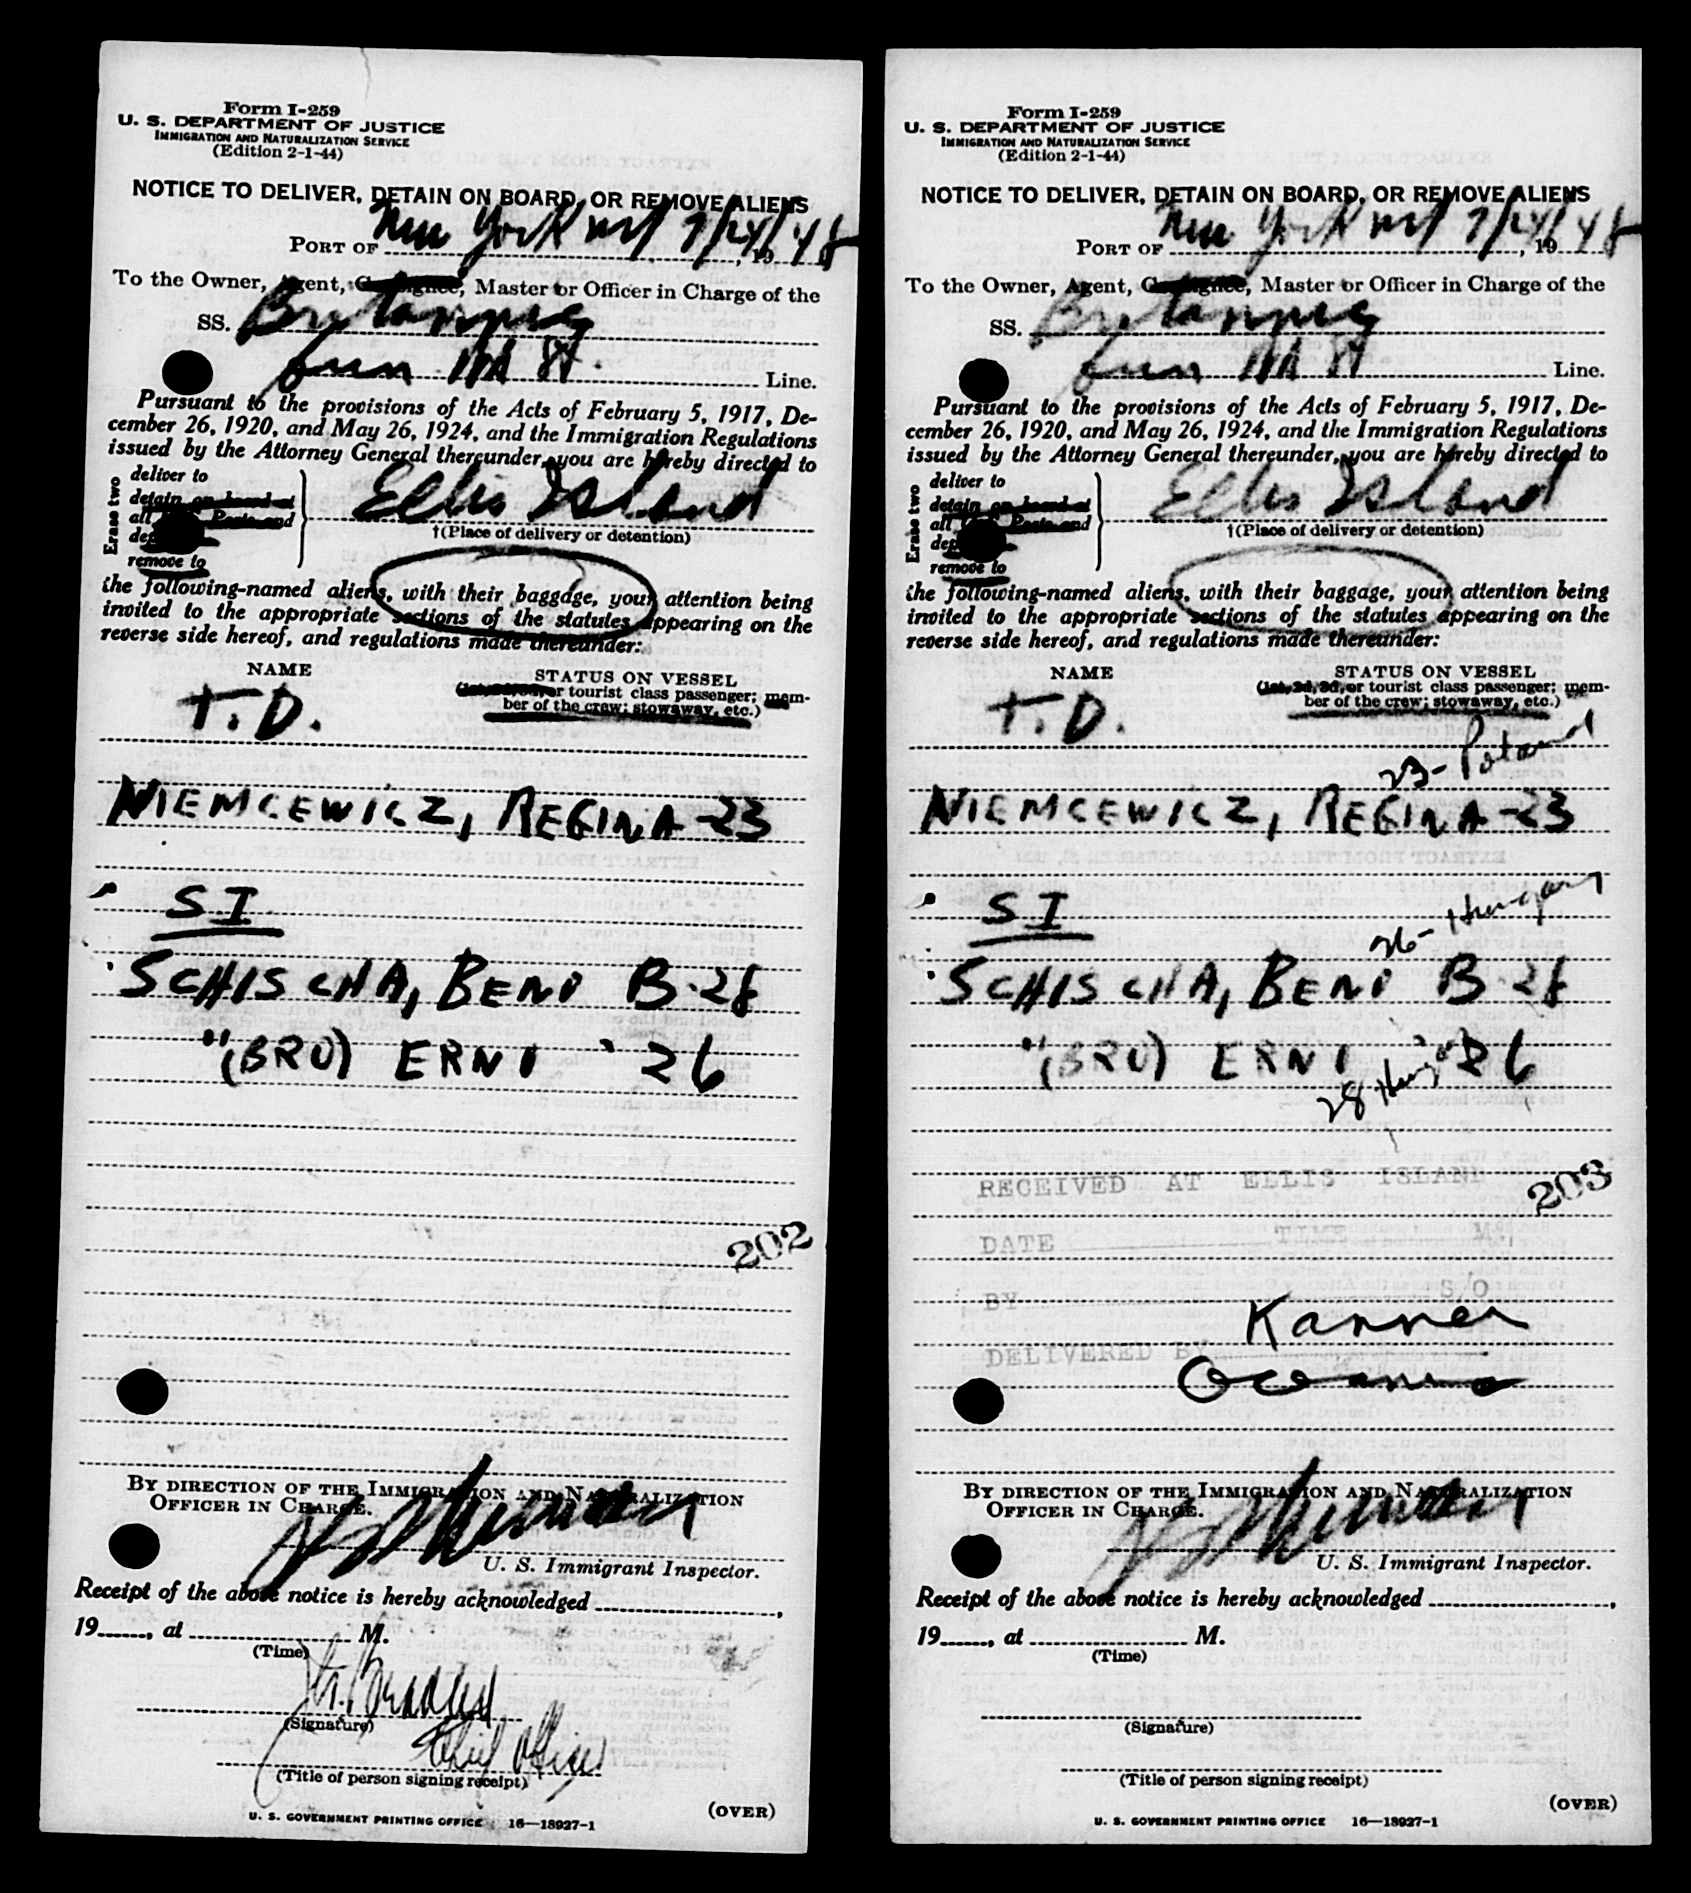 Form I-259
U. S. DEPARTMENT OF JUSTICE
IMMIGRATION AND NATURALIZATION SERVICE
(Edition 2-1-44)
NOTICE TO DELIVER, DETAIN ON BOARD, OR REMOVE ALIENS
PORT OF New York 7/24/48, 19
To the Owner, Agent, Consignee, Master or Officer in Charge of the
SS. Britannic
Cun Line.
Pursuant to the provisions of the Acts of February 5, 1917, De-
cember 26, 1920, and May 26, 1924, and the Immigration Regulations
issued by the Attorney General thereunder, you are hereby directed to
Erase two
deliver to
detain on board at
all and
remove to
Ellis Island
†(Place of delivery or detention)
the following-named aliens, with their baggage, your attention being
invited to the appropriate sections of the statutes appearing on the
reverse side hereof, and regulations made thereunder:
NAME
STATUS ON VESSEL
or tourist class passenger; mem-
ber of the crew; stowaway, etc.)
T.D.
NIEMCEWICZ, REGINA-23
SI
SCHISCHA, BENO B-28
"(BRO) ERNO "26
202
BY DIRECTION OF THE IMMIGRATION AND NATURALIZATION
OFFICER IN CHARGE.
U. S. Immigrant Inspector.
Receipt of the above notice is hereby acknowledged ,
19, at M.
(Time)
(Signature)
Chief Officer
(Title of person signing receipt)
U. S. GOVERNMENT PRINTING OFFICE 16—18927-1
(OVER)
Form I-259
U. S. DEPARTMENT OF JUSTICE
IMMIGRATION AND NATURALIZATION SERVICE
(Edition 2-1-44)
NOTICE TO DELIVER, DETAIN ON BOARD, OR REMOVE ALIENS
PORT OF New York 7/24/48, 19
To the Owner, Agent, Consignee, Master or Officer in Charge of the
SS. Britannic
Cun Line.
Pursuant to the provisions of the Acts of February 5, 1917, De-
cember 26, 1920, and May 26, 1924, and the Immigration Regulations
issued by the Attorney General thereunder, you are hereby directed to
Erase two
deliver to
detain on board at
all and
remove to
Ellis Island
†(Place of delivery or detention)
the following-named aliens, with their baggage, your attention being
invited to the appropriate sections of the statutes appearing on the
reverse side hereof, and regulations made thereunder:
NAME
STATUS ON VESSEL
(1st, 2d, 3d, or tourist class passenger; mem-
ber of the crew; stowaway, etc.)
T.D.
23- Poland
NIEMCEWICZ, REGINA-23
SI
26- Hungary
SCHISCHA, BENO B-28
"(BRO) ERNO "26
28 Hung
RECEIVED AT ELLIS ISLAND
203
DATE TIME M.
BY S/O
Kanner
DELIVERED BY
BY DIRECTION OF THE IMMIGRATION AND NATURALIZATION
OFFICER IN CHARGE.
U. S. Immigrant Inspector.
Receipt of the above notice is hereby acknowledged ,
19, at M.
(Time)
(Signature)
(Title of person signing receipt)
(OVER)
U. S. GOVERNMENT PRINTING OFFICE 16—18927-1